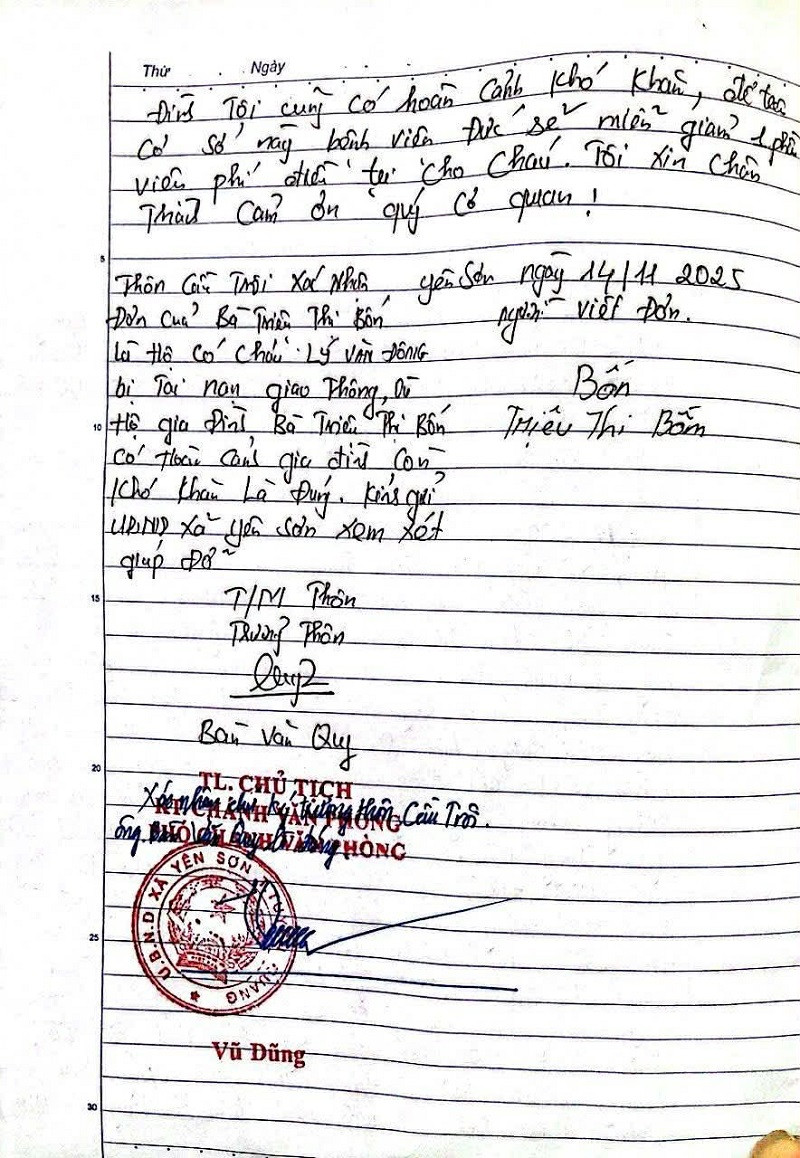 Thứ Ngày
Đình Tôi cũng có hoàn cảnh khó khăn, để tạo
cơ sở này bệnh viện Đức sẽ miễn giảm 1 phần
viện phí điều trị cho cháu. Tôi xin chân
Thành cảm ơn quý cơ quan!
5
Thôn Cầu Trôi Xác Nhận
Đơn của Bà Triệu Thị Bốn
là Hộ có cháu Lý Văn Đông
bị Tai nạn giao Thông,
10
Hộ gia Đình Bà Triệu Thị Bốn
có Hoàn cảnh gia đình còn
Khó khăn Là Đúng. Kính gửi
UBND xã yên sơn xem xét
giúp Đỡ
yên Sơn ngày 14/11 2025
người viết Đơn.
Bốn
Triệu Thị Bốn
15
T/M Thôn
Trưởng Thôn
Quy
Bàn Văn Quy
20
TL. CHỦ TỊCH
KT. CHÁNH VĂN PHÒNG
PHÓ CHÁNH VĂN PHÒNG
Xác nhận chữ ký trưởng thôn Cầu Trôi.
ông là đúng.
U.B.N.D XÃ YÊN SƠN
25
Vũ Dũng
30